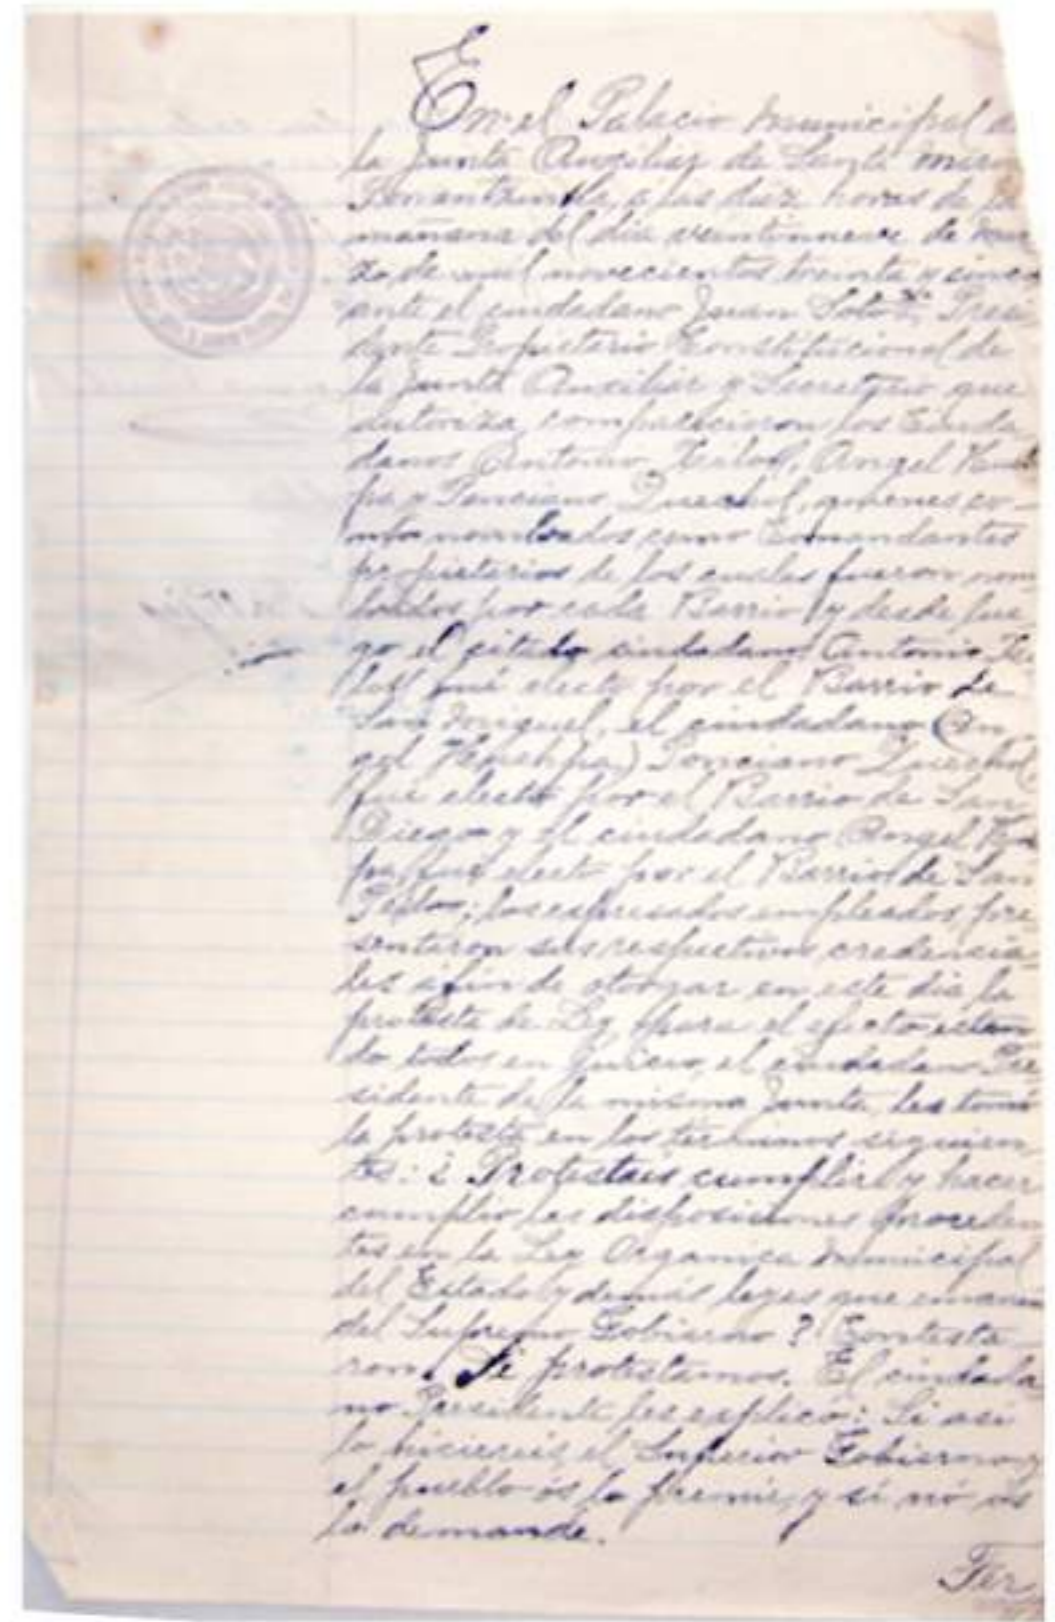 En el Palacio Municipal de
la Junta Auxiliar de Santa María
Tonantzintla, a las diez horas de la
mañana del día veintinueve de mar
zo de mil novecientos treinta y cinco
ante el ciudadano Juan Soto Presi
dente Propietario Constitucional de
la Junta Auxiliar y Secretario que
autoriza, comparecieron los Ciuda
danos Antonio Angel
y Ponciano Quechol, quienes co-
nombrados como Comandantes
propietarios de los cuales fueron nom
brados por cada Barrio y desde lue
go el citado ciudadano Antonio
fué electo por el Barrio de
San Miguel, el ciudadano (An
gel Ponciano Quechol,
fué electo por el Barrio de San
Diego y el ciudadano Angel
fué electo por el Barrio de San
Pedro; los expresados empleados, pre
sentaron sus respectivas credencia
les a fin de otorgar en este día la
protesta de Ley, para el efecto estan
do todos en juicio, el ciudadano Pre
sidente de la misma Junta, les tomó
la protesta en los términos siguien
tes: ¿Protestais cumplir y hacer
cumplir las disposiciones proceden
tes en la Ley Organica Municipal
del Estado y demás leyes que emanen
del Supremo Gobierno? Contesta
ron. Si protestamos. El ciudada
no Presidente les explicó: Si asi
lo hiciereis, el Superior Gobierno y
el pueblo ós lo premie, y si nó os
lo demande.